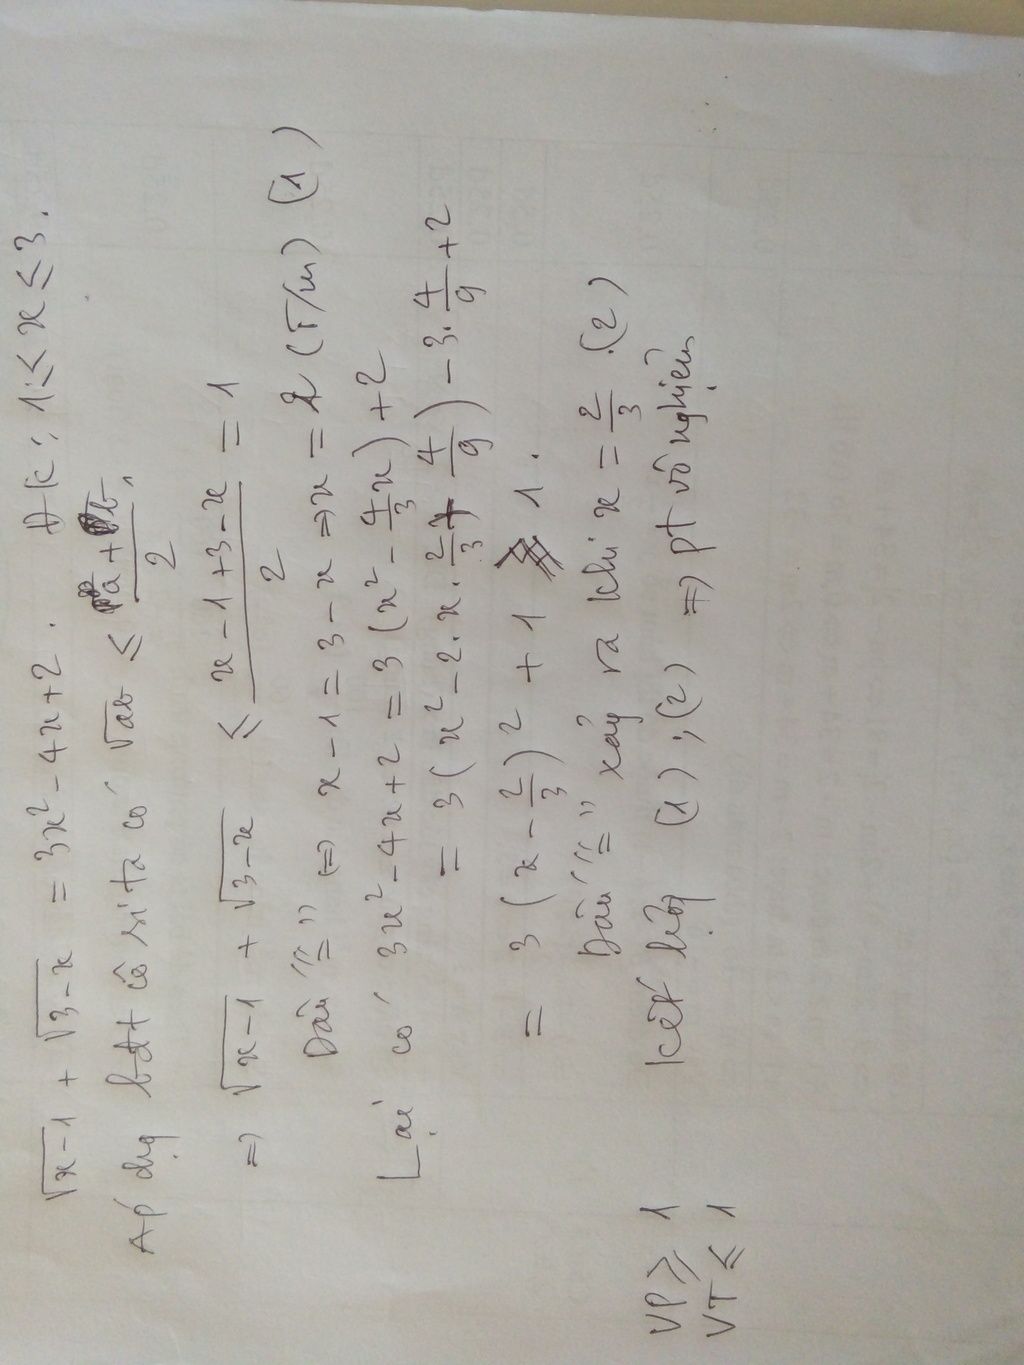 √x-1 + √3-x = 3x² - 4x + 2 . ĐK : 1 ≤ x ≤ 3 .
Áp dụg bđt cô si ta có √ab ≤ a + b / 2 ,
⇒ √x-1 + √3-x ≤ x - 1 + 3 - x / 2 = 1
Dấu "=" ⇔ x - 1 = 3 - x ⇒ x = 2 (T/m) (1)
Lại có 3x² - 4x + 2 = 3 (x² - 4/3 x) + 2
= 3 (x² - 2 . x . 2/3 + 4/9) - 3 . 4/9 + 2
= 3 (x - 2/3)² + 1 ≥ 1 .
Dấu "=" xảy ra khi x = 2/3 . (2)
Kết hợp (1) ; (2) ⇒ pt vô nghiệm
VP ≥ 1
VT ≤ 1